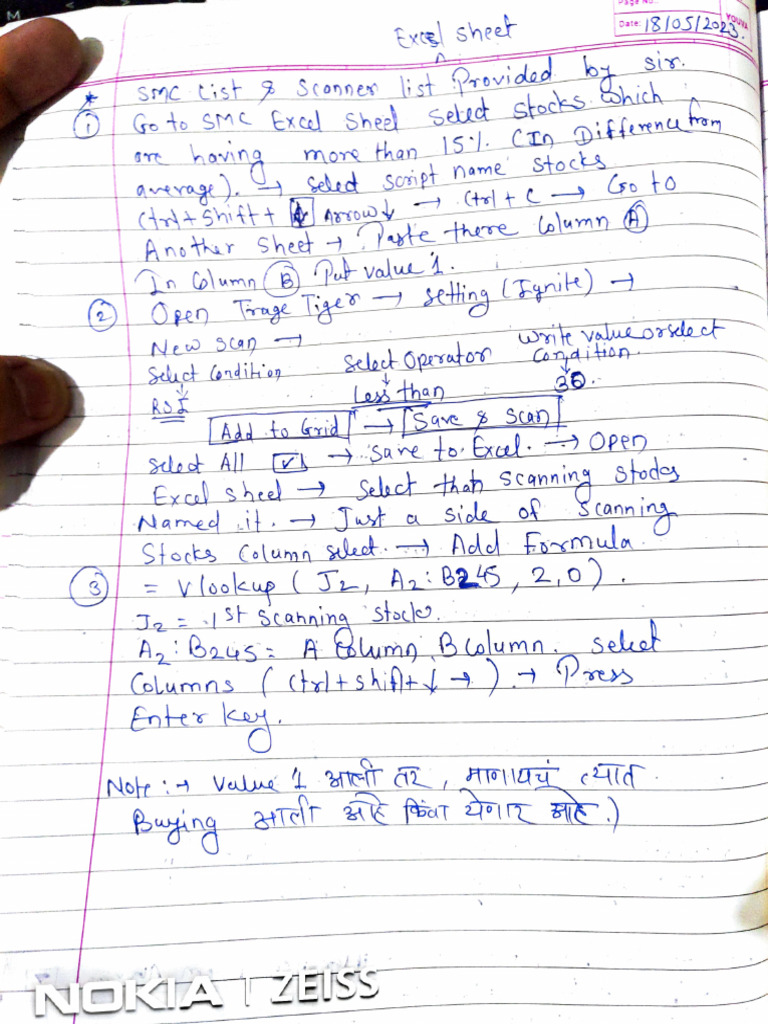 Page No.
Date: 18/05/2023.
YOUVA
Excel sheet
* SMC List & Scanner list Provided by sir.
① Go to SMC Excel Sheel Select Stocks which
are having more than 15%. (In Difference from
average). → select script name stocks
Ctrl + Shift + Arrow↓ → Ctrl + C → Go to
Another Sheet → Paste there Column Ⓐ
In Column Ⓑ Put value 1.
② Open Trage Tiger → setting (Ignite) →
New scan →
Select Condition Select Operator Write value or select condition.
↓ ↓ ↓
RSI Less than 30.
Add to Grid → Save & Scan
Select All ✓ → Save to Excel. → Open
Excel sheel → Select that scanning stocks
Named it. → Just a side of Scanning
Stocks Column select. → Add Formula
③ = Vlookup ( J2, A2:B245, 2,0).
J2 = 1st scanning stock.
A2:B245 = A Column, B Column. select
Columns ( Ctrl + shift + ↓ → ) → Press
Enter key.
Note :→ Value 1 आली तर, मानायचं त्यात
Buying आली आहे किंवा येणार आहे.)
NOKIA | ZEISS